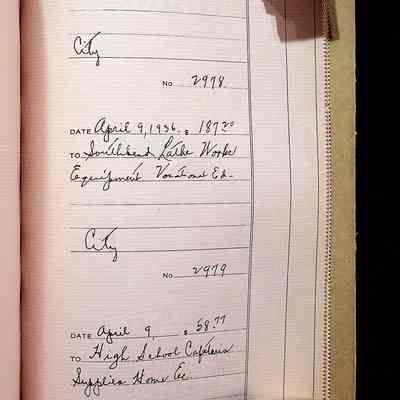 City
NO 2978
DATE April 9, 1936. $ 187.20
TO Southbend Lathe Works
Equipment Vocational Ed.
City
NO 2979
DATE April 9, $ 58.77
TO High School Cafeteria
Supplies Home Ec.